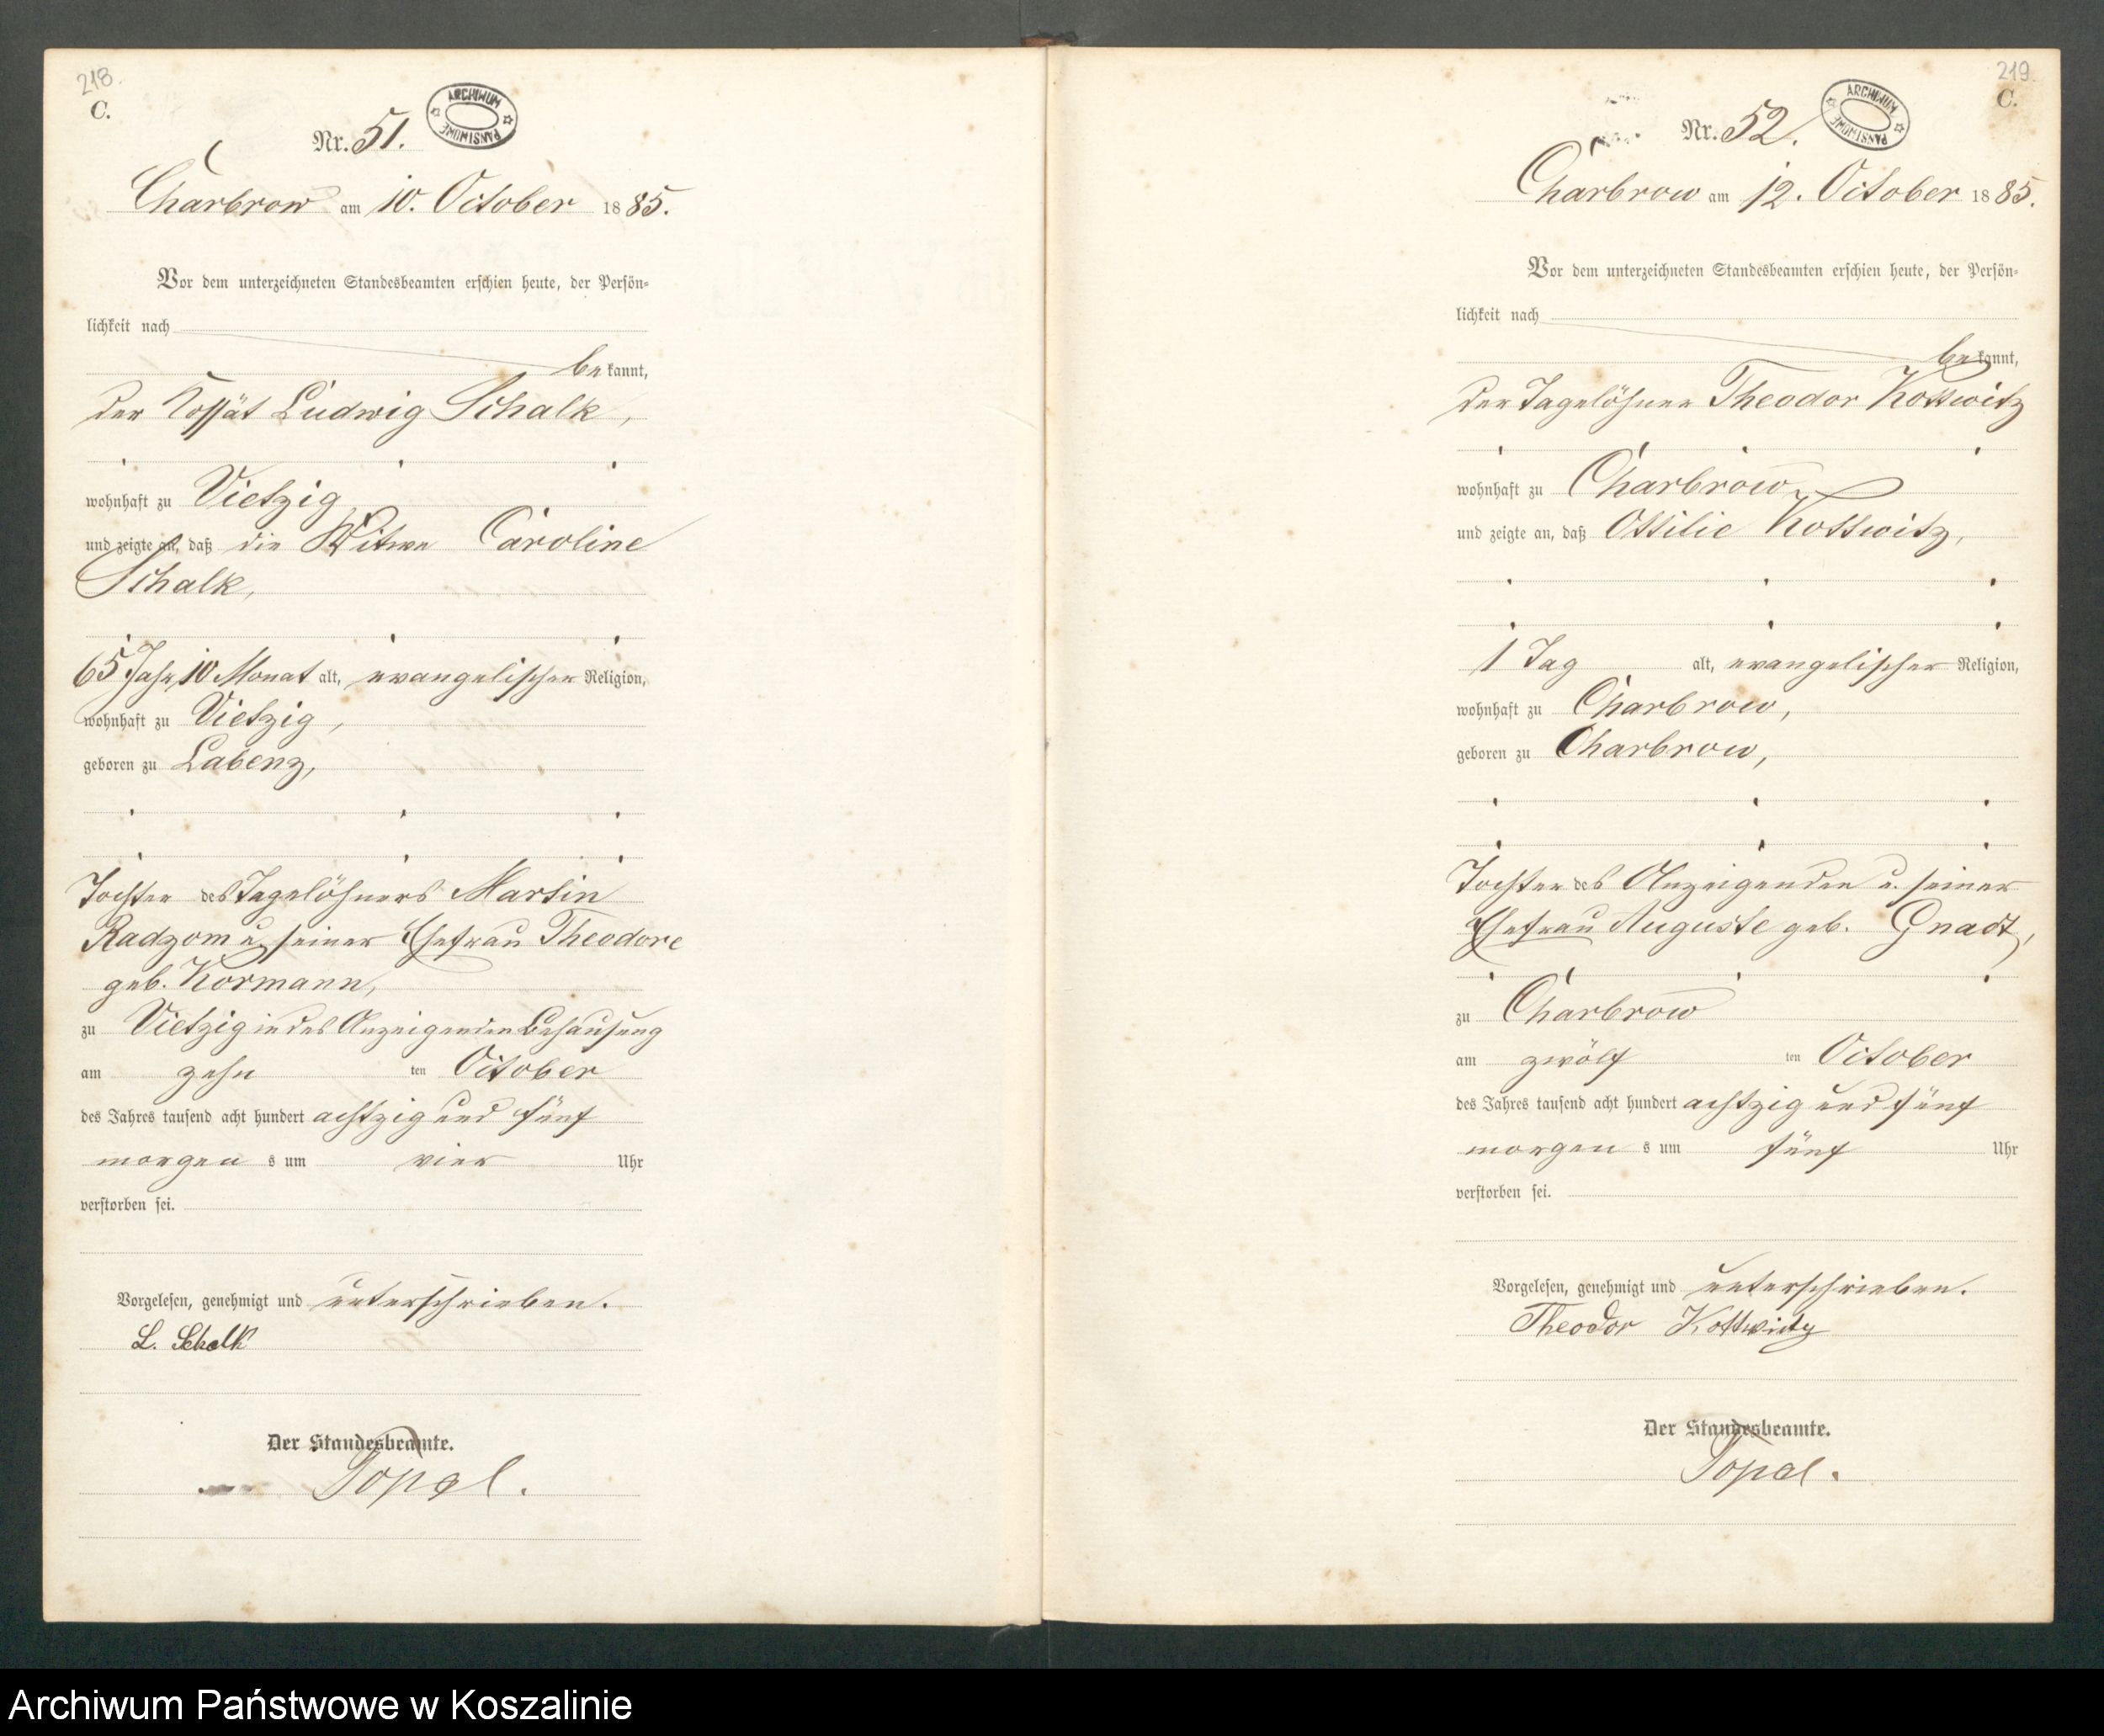 218.
C.
ARCHIWUM PAŃSTWOWE
Nr. 51.
Charbrow am 10. October 1885.
Vor dem unterzeichneten Standesbeamten erschien heute, der Persön-
lichkeit nach
bekannt,
der Kossät Ludwig Schalk,
wohnhaft zu Vietzig
und zeigte an, daß die Witwe Caroline
Schalk,
65 Jahr, 10 Monat alt, evangelischer Religion,
wohnhaft zu Vietzig,
geboren zu Labenz,
Tochter des Tagelöhners Martin
Radzom u. seiner Ehefrau Theodore
geb. Kormann,
zu Vietzig in des Anzeigenden Behausung
am zehn ten October
des Jahres tausend acht hundert achtzig und fünf
morgen s um vier Uhr
verstorben sei.
Vorgelesen, genehmigt und unterschrieben.
L. Schalk
Der Standesbeamte.
Topel.
219.
C.
ARCHIWUM PAŃSTWOWE
Nr. 52.
Charbrow am 12. October 1885.
Vor dem unterzeichneten Standesbeamten erschien heute, der Persön-
lichkeit nach
bekannt,
der Tagelöhner Theodor Kottwitz
wohnhaft zu Charbrow
und zeigte an, daß Ottilie Kottwitz,
1 Tag alt, evangelischer Religion,
wohnhaft zu Charbrow,
geboren zu Charbrow,
Tochter des Anzeigenden u. seiner
Ehefrau Auguste geb. Gnadt,
zu Charbrow
am zwölf ten October
des Jahres tausend acht hundert achtzig und fünf
morgen s um fünf Uhr
verstorben sei.
Vorgelesen, genehmigt und unterschrieben.
Theodor Kottwitz
Der Standesbeamte.
Topel.
Archiwum Państwowe w Koszalinie